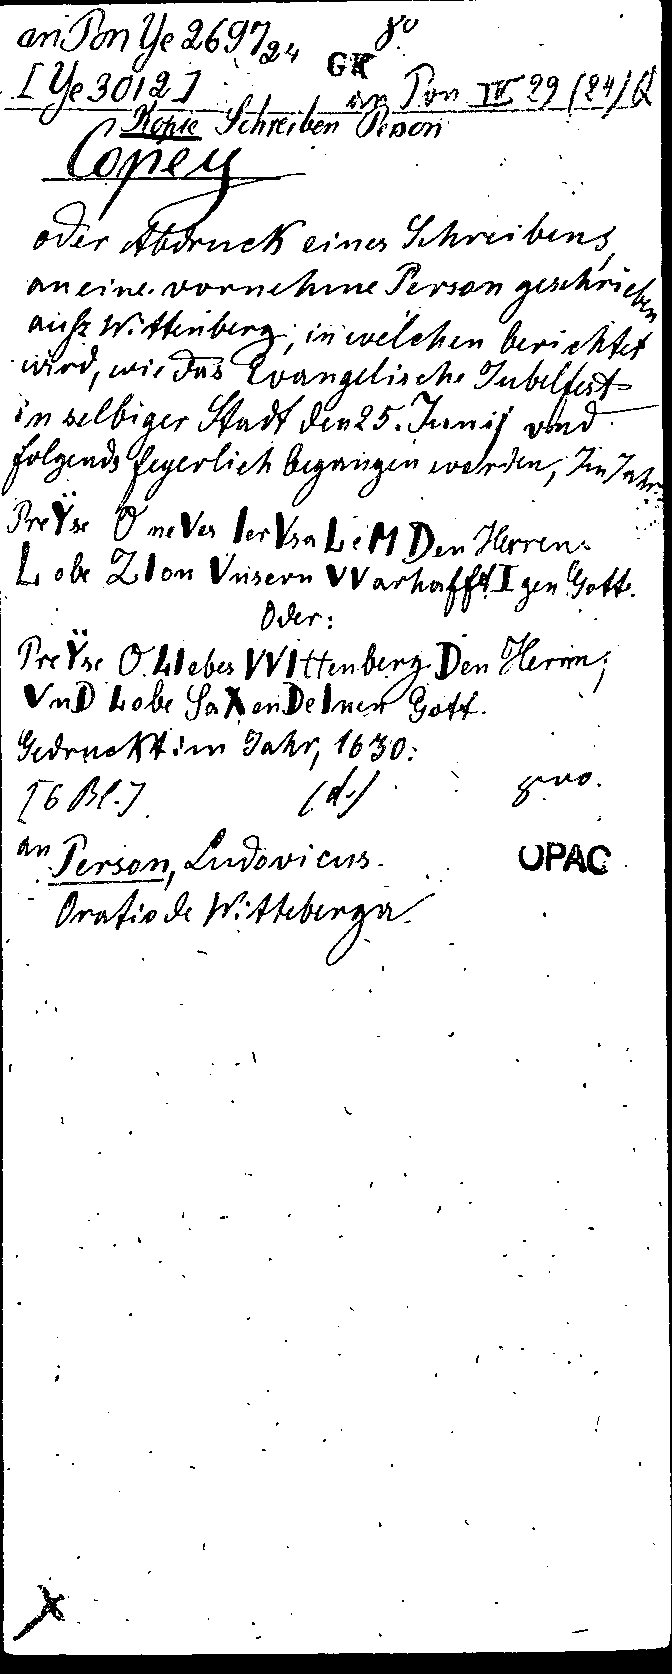 an Pon Ye 2697 24 8°
[Ye 3012] GK an Pon IV 29 (24) Q
Kopie Schreiben Person
Copey
oder Abdruck eines Schreibens,
an eine vornehme Person geschrieben
aufz Wittenberg, in welchen berichtet
wird, wie das Evangelische Jubelfest
in selbiger Stadt den 25. Junij vnd
folgends feyerlich begangen worden, Im Jahr:
PreŸse O neVes IerVsaLeM Den Herren.
Lobe ZIon Vnsern VVarhafftIgen Gott.
Oder:
PreŸse O LIebes VVIttenberg Den Herrn;
VnD Lobe SaXen DeInen Gott.
Gedruckt im Jahr, 1630:
[6 Bl.] (d.) 8vo.
an Person, Ludovicus. OPAC
Oratio de Witteberga.